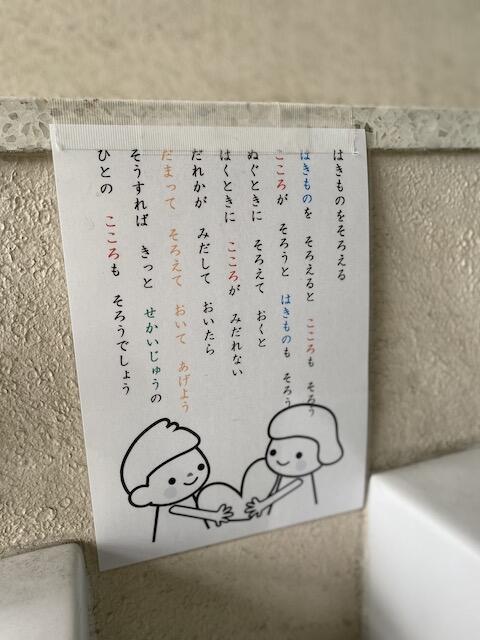 はきものをそろえる
はきものを そろえると こころも そろう
こころが そろうと はきものも そろう
ぬぐときに そろえて おくと
はくときに こころが みだれない
だれかが みだして おいたら
だまって そろえて おいて あげよう
そうすれば きっと せかいじゅうの
ひとの こころも そろうでしょう